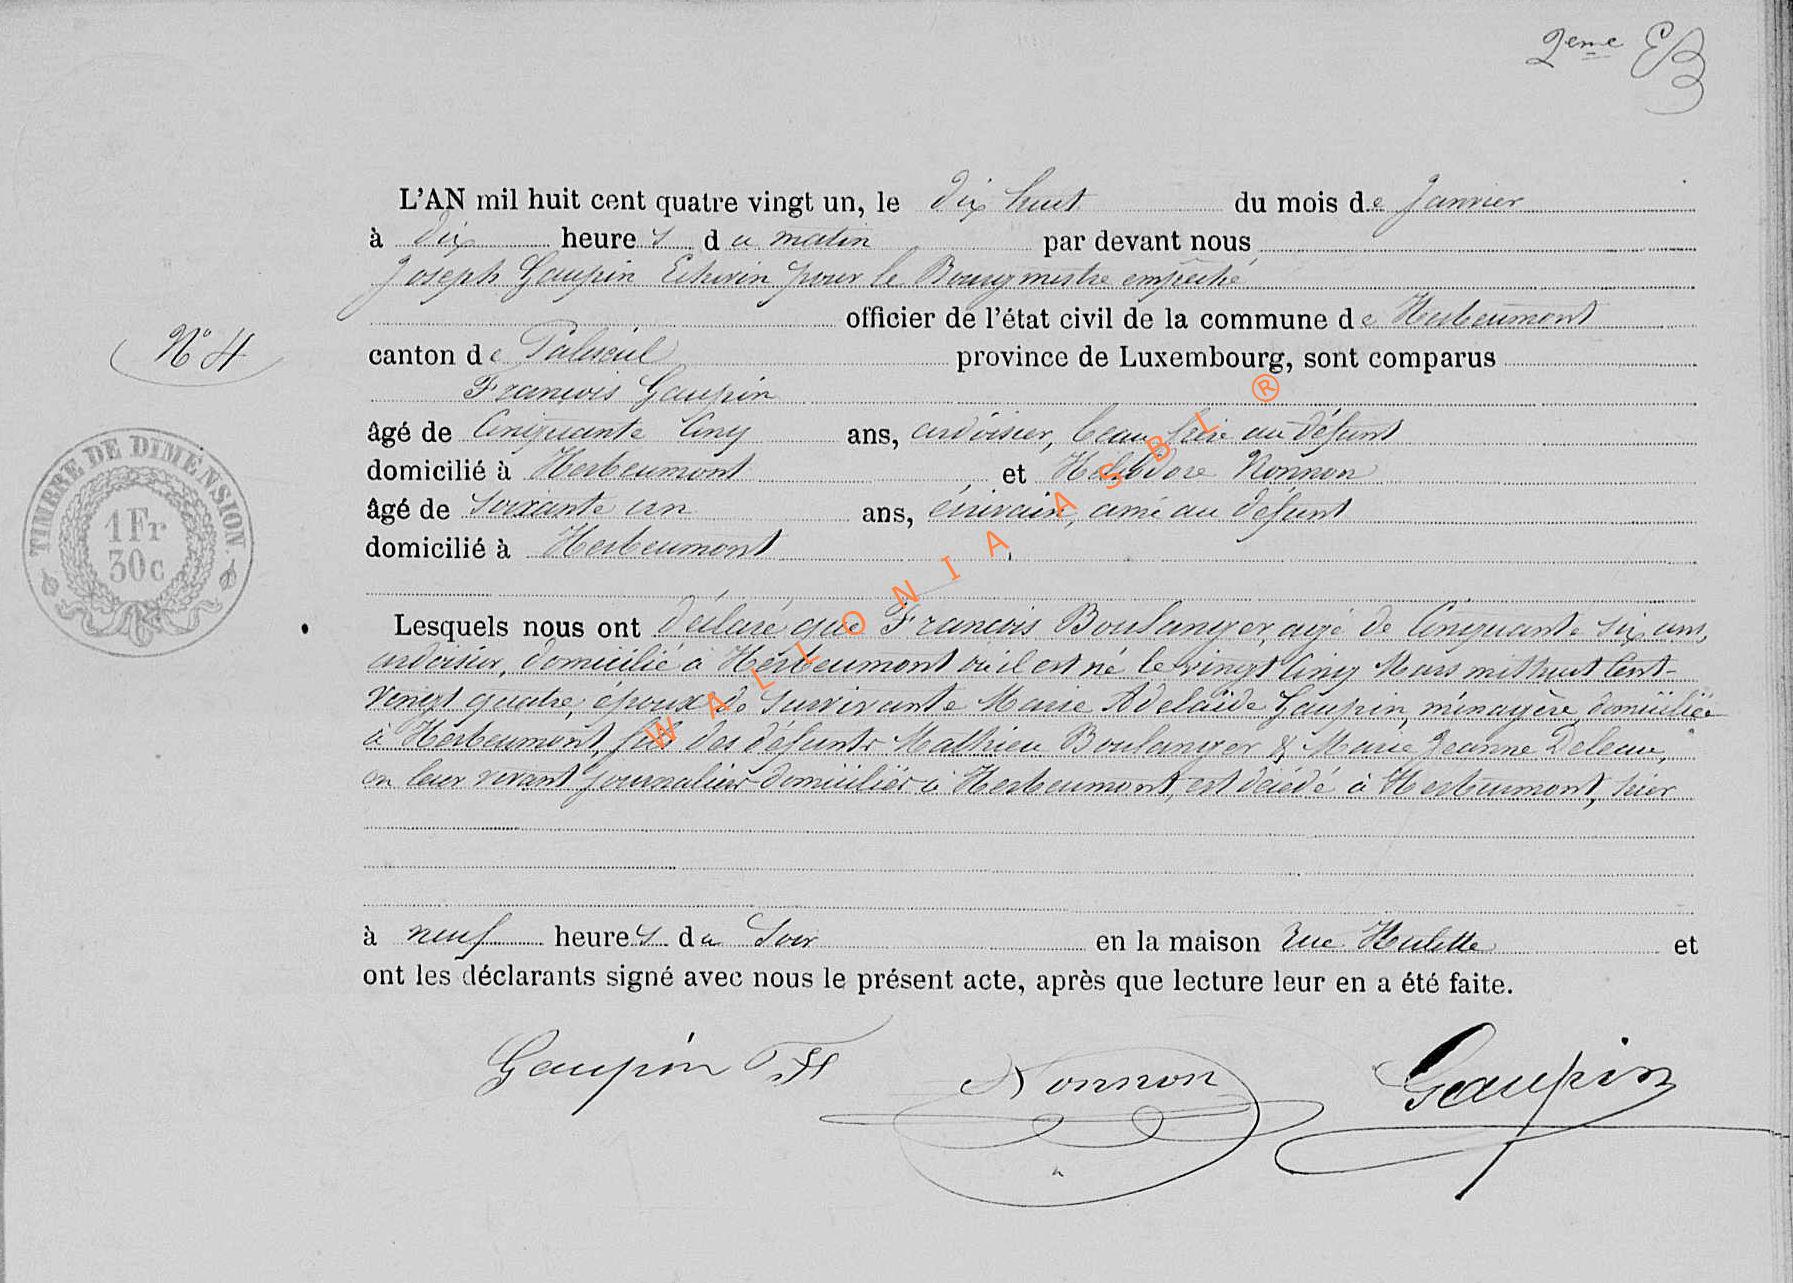 2eme EB
L'AN mil huit cent quatre vingt un, le dix huit du mois de Janvier
à dix heures du matin par devant nous
Joseph Gaupin Echevin pour le Bourgmestre empêché
officier de l'état civil de la commune de Herbeumont
N° 4
canton de Paliseul province de Luxembourg, sont comparus
François Gaupin
âgé de Cinquante Cinq ans, ardoisier, beau frère au défunt
domicilié à Herbeumont et Héliodore Nonnon
âgé de soixante un ans, écrivain, ami au défunt
domicilié à Herbeumont
TIMBRE DE DIMENSION
1 Fr
30c
Lesquels nous ont déclaré que François Boulanger, agé de Cinquante six ans,
ardoisier, domicilié à Herbeumont où il est né le vingt Cinq Mars mil huit Cent-
vingt quatre, époux de survivante Marie Adelaïde Gaupin, ménagère domiciliée
à Herbeumont, fils des défunts Mathieu Boulanger & Marie Jeanne
en leur vivant journaliers domiciliés à Herbeumont, est décédé à Herbeumont, hier
à neuf heures du soir en la maison rue Hulette et
ont les déclarants signé avec nous le présent acte, après que lecture leur en a été faite.
Gaupin Nonnon Gaupin
WALLONIA ASBL ®